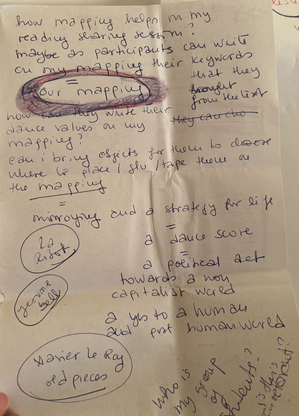 how mapping helps in my
reading sharing session?
maybe as participants can write
on my mapping their keywords
that they
brought
from the text
our mapping
how can they write their
they can cho
dance values on my
mapping?
can i bring objects for them to
where to place / glu / tape them on
the mapping
=
and a strategy for life
=
a dance score
=
La
Ribot
a political act
towards a non
capitalist world
jerome
bell
a yes to a human
and post human world
Xavier Le Roy
old pieces
who is
my group
of
students?
is this
relevant?